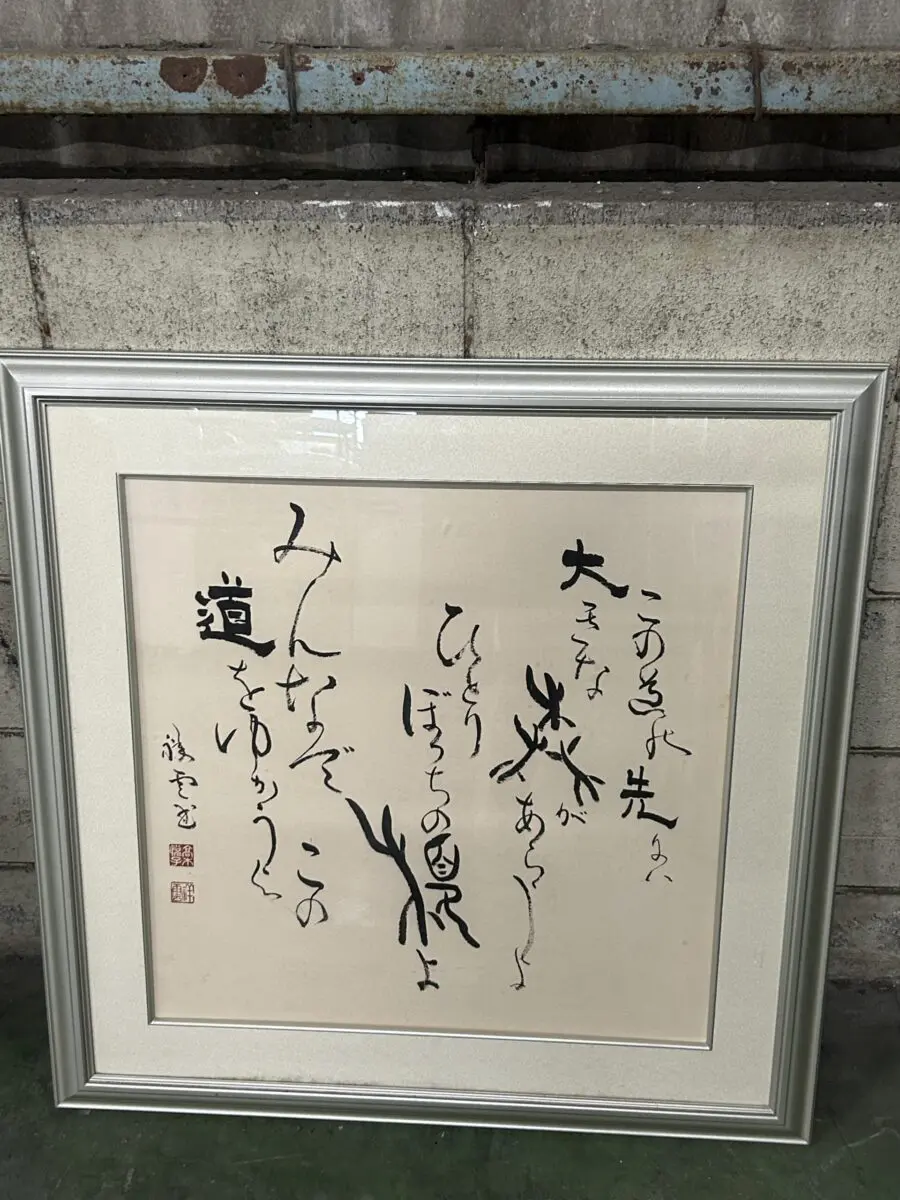 この道の先には
大きな森が
あらうよ
ひとり
ぼっちの榎よ
みんなで この
道をゆかうよ